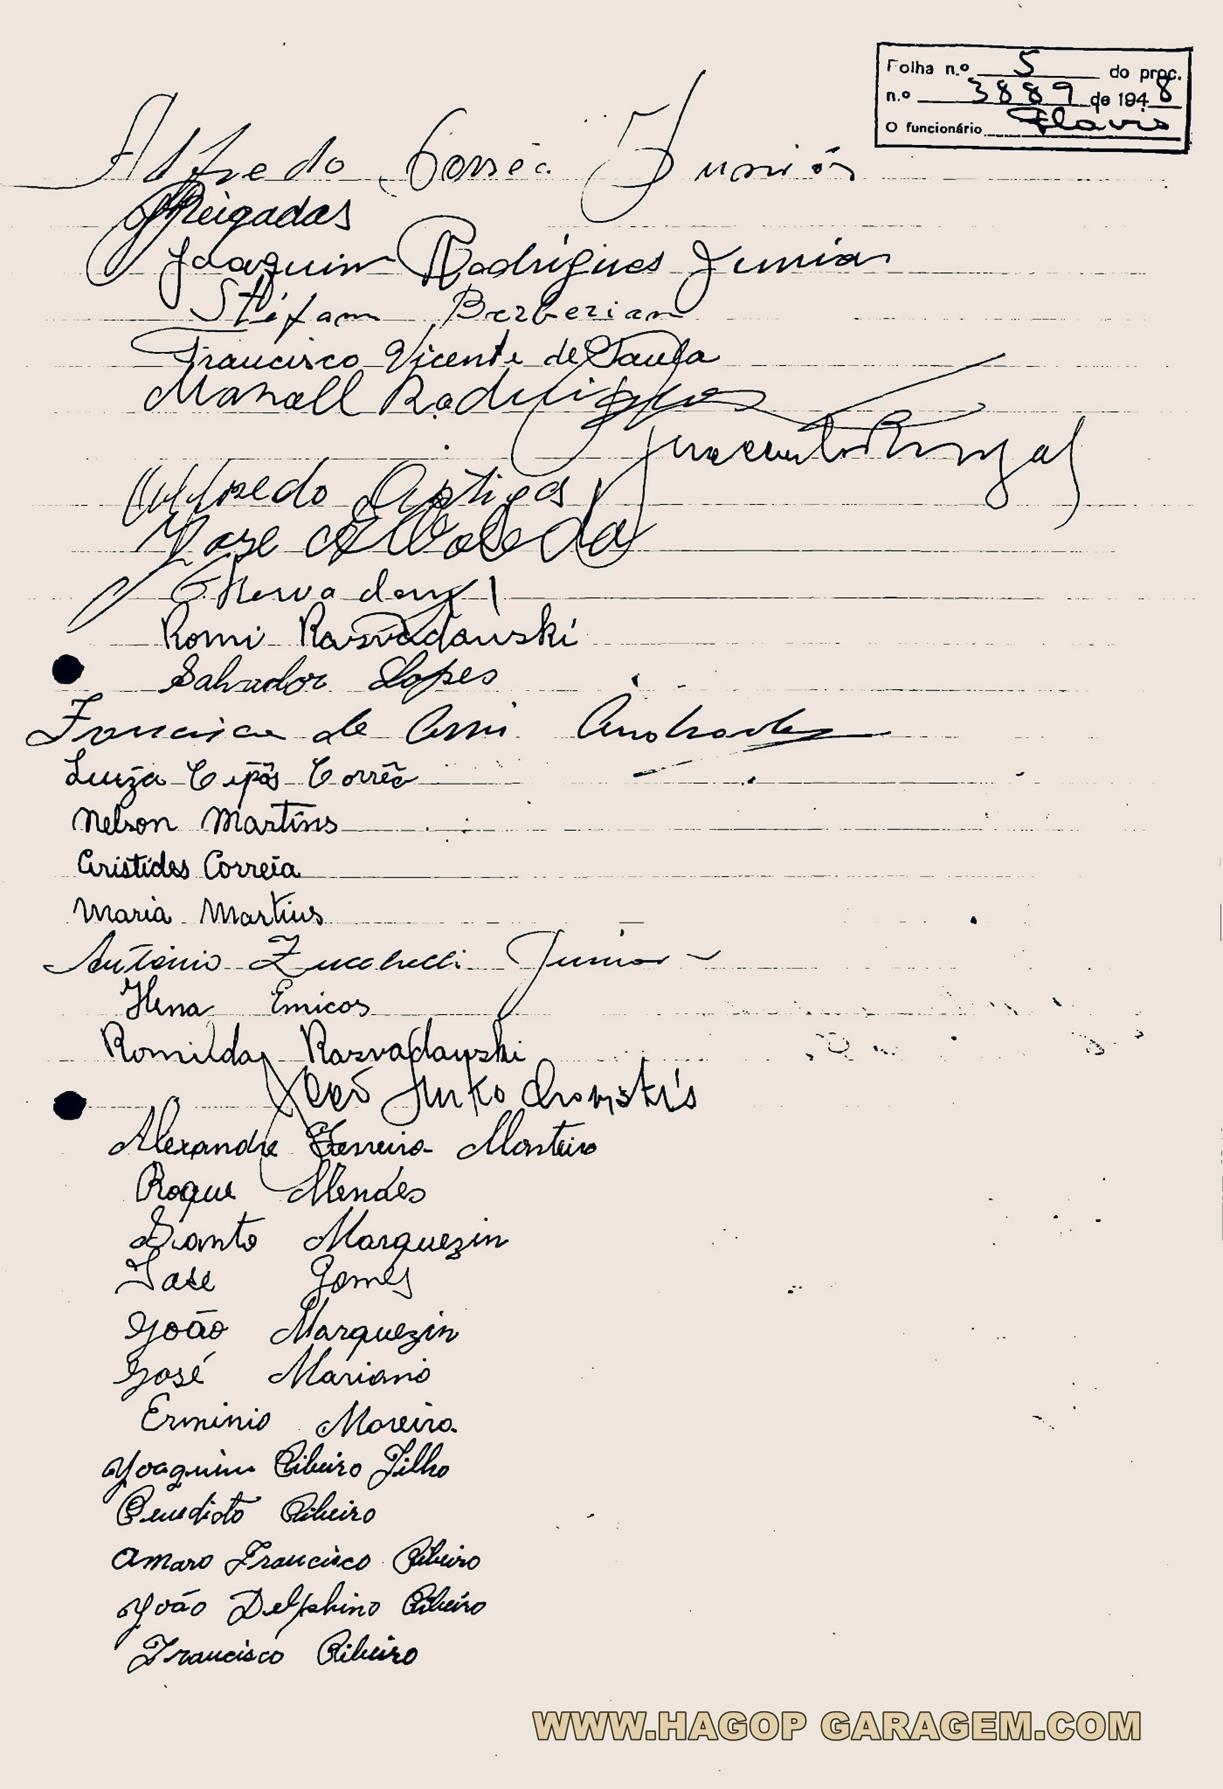 Folha n.º 5 do proc.
n.º 3889 de 1948
O funcionário Flavio
Alfredo Corrêa Junior
Joaquim Rodrigues Junior
Stéfam Berberian
Francisco Vicente de Paula
Manoell Rodrigues
Alfredo Artigas
Jose
Romi Rasvadauski
Salvador Lopes
Francisca de Andrade
Luiza Cipôs Corrêa
Nelson Martins
Aristides Correia
Maria Martins
Antônio Zucchelli Junior
Hena Emicos
Romilda Rasvadauski
Alexandre Ferreira Monteiro
Roque Mendes
Santo Marquezin
Jose Gomes
João Marquezin
José Mariano
Erminio Moreira
Joaquim Ribeiro Filho
Benedicto Ribeiro
Amaro Francisco Ribeiro
João Delphino Ribeiro
Francisco Ribeiro
WWW.HAGOP GARAGEM.COM